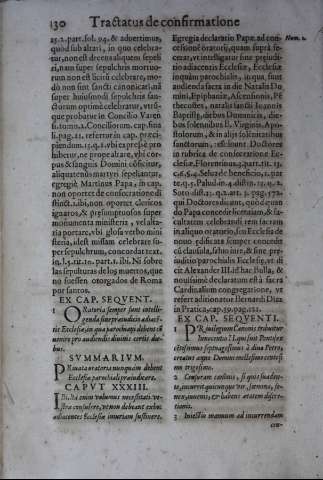 130 Tractatus de confirmatione
25.2.part.sol.94. & advertimus,
quòd sub altari, in quo celebra-
tur, non est decens aliquem sepeli
ri, nam super sepulchris mortuo-
rum non est licitũ celebrare, modò
non sint sancti canonicati nã
super huiusmodi sepulchris san-
ctorum optimè celebratur,
que probatur in Concilio Varen
si. tomo.2. Conciliorum. cap. fina
li pag.21. refertur in cap. præci-
piendum. 13.q.2. vbi expresse pro
hibetur, ne prope altare, vbi cor-
pus & sanguis Domini cõficitur,
aliquatenùs martyri sepeliantur,
egregiè Martinus Papa, in cap.
non oportet de consecratione di
stinct.1. ibi, non oportet clericos
ignaros, & præsumptuosos super
monumenta ministeria, vel alta-
ria portare, vbi glosa verbo mini
steria, idest missam celebrare su-
per sepulchrum, concordat text.
in.l.5.tit.10. part.1. ibi. Ni sobre
las sepulturas de los muertos, que
no fuessen otorgados de Roma
por santos.
EX CAP. SEQVENT.
1 ORatoria semper sunt intelli-
genda sine præiudicio adiacē-
tis Ecclesiæ, in qua parochiani debent cõ
venire pro audiendis divinis certis die-
bus.
SVMMARIVM.
PRivata oratoria nunquam debent
Ecclesiæ parochiali præiudicare.
CAPVT XXXIII.
Ibi, ita enim volumus necessitati ve-
stra consulere, vt non debeant exhoc
adiacentes Ecclesiæ iniuriam sustinere.
Egregia declaratio Papæ ad con-
cessionē oratorij, quam suprà fe-
cerat, vt intelligatur sine præiudi-
cio adiacentis Ecclesiæ, Ecclesiæ
inquam parochialis, in qua sunt
audienda sacra in die Natalis Do-
mini, Epiphaniæ, Ascensionis, Pē
thecostes, natalis sancti Ioannis
Baptistæ, diebus Dominicis, die-
bus solennibus B. Virginis, Apo-
stolorum, & in alijs solennitatibus
sanctorum,
in rubrica de consecratione Ec-
clesiæ, Florentinus
Num. 1.
qui Doctores dicunt, quòd quan
do Papa concedit licentiam, & fa-
cultatem celebrandi rem sacram
in aliquo oratorio, seu Ecclesia de
novo ędificata semper conceden
di clausula, salvo iure, & sine præ-
iudicio parochialis Ecclesiæ, vt di-
cit Alexander III. in hac Bulla, &
novissimè declaratum est à sacra
Cardinalium congregatione, vt
refert additionator Bernardi Diaz
in Practica, cap.39. pag.121.
EX CAP. SEQVENTI.
1 PRivilegium Canonis tribuitur
Innocentio II. qui fuit Pontifex
cētesimus septuagesimus à divo Petro,
creatus anno Domini millesimo centesi
mo trigesimo.
2 Censuram canonis, si quis suaden-
te, incurrit quicunque vir, fœmina, iu-
venes, iuvenis, & habens ætatem discre-
tionis.
3 Iniectio manuum ad incurrendam
cen-